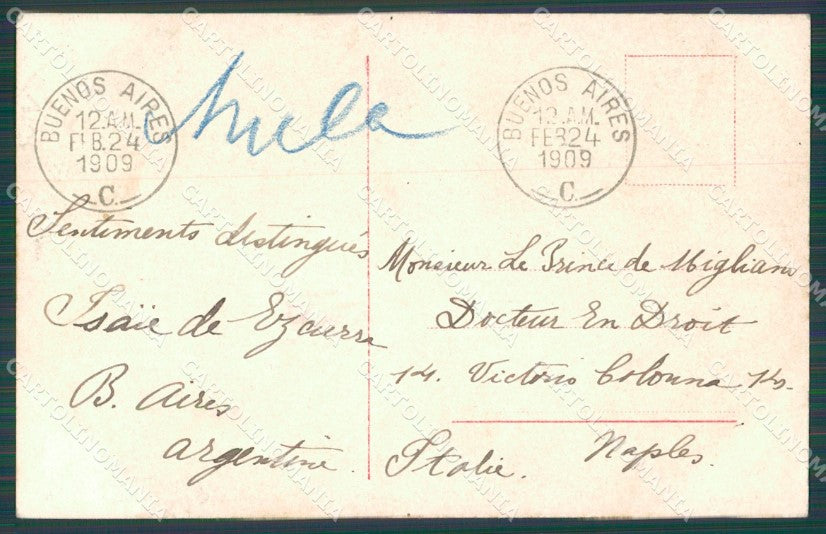 BUENOS AIRES
12 A.M.
FEB. 24
1909
C.
BUENOS AIRES
12 A.M.
FEB 24
1909
C.
Sentiments distingués
Isaïe de Ezcurra
B. Aires
Argentine.
Monsieur Le Prince de Migliano
Docteur En Droit
14. Victorio Colonna 14.
Naples.
Italie.
CARTOLINOMANIA